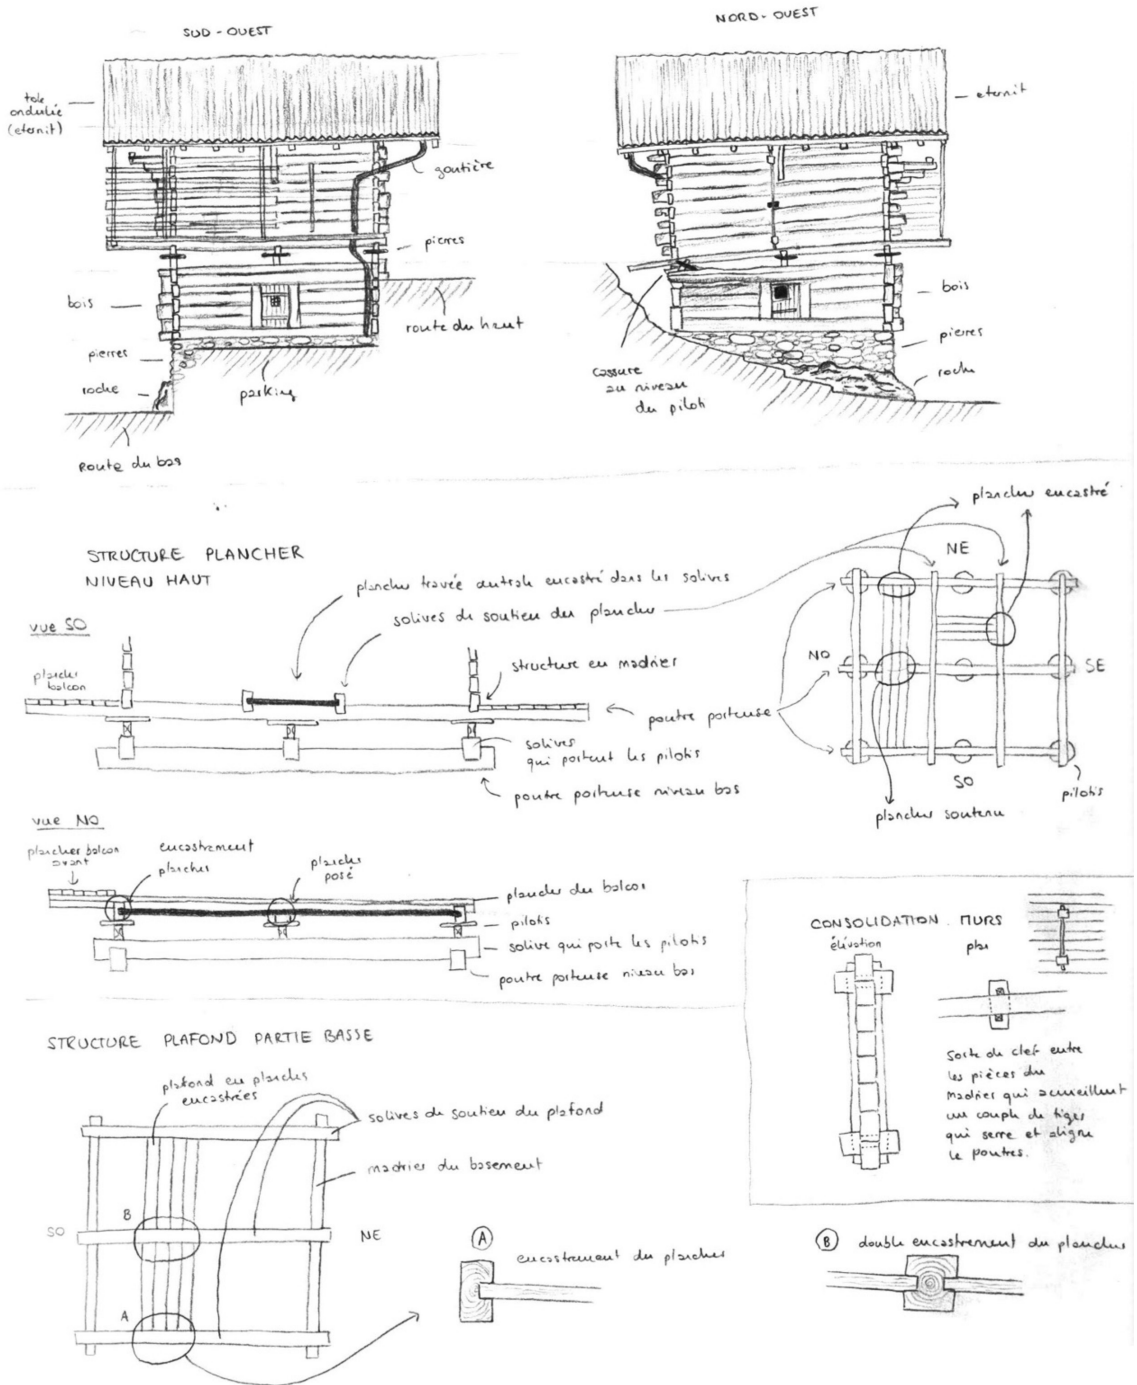 SUD-OUEST
NORD-OUEST
tole
ondulée
(eternit)
goutière
pierres
bois
route du haut
pierres
roche
parking
Route du bas
eternit
bois
pierres
roche
cassure
au niveau
du piloti
STRUCTURE PLANCHER
NIVEAU HAUT
plancher travée centrale encastré dans les solives
solives de soutien du plancher
plancher encastré
NE
vue SO
plancher
balcon
structure en madrier
poutre porteuse
NO
SE
SO
solives
qui portent les pilotis
poutre porteuse niveau bas
pilotis
plancher soutenu
vue NO
plancher balcon
avant
encastrament
plancher
plancher
posé
plancher du balcon
pilotis
solive qui porte les pilotis
poutre porteuse niveau bas
CONSOLIDATION MURS
élévation
plan
Sorte de clef entre
les pièces du
madrier qui acueillent
un couple de tiges
qui serre et aligne
le poutres.
STRUCTURE PLAFOND PARTIE BASSE
plafond en planches
encastrées
solives de soutien du plafond
madrier du basement
B
SO
NE
A
A
encastrement du plancher
B
double encastrement du plancher